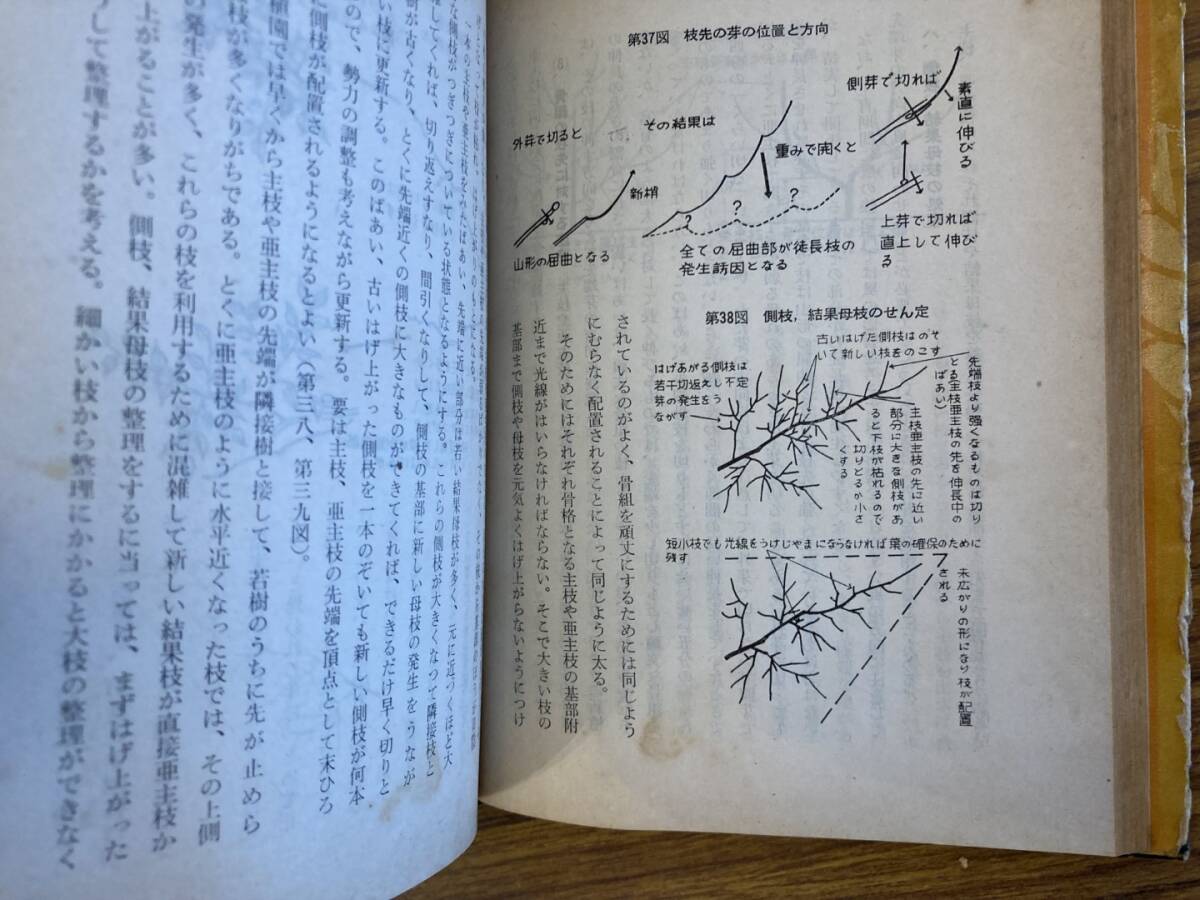 第37図 枝先の芽の位置と方向
外芽で切ると
その結果は
側芽で切れば
素直に伸びる
重みで開くと
新梢
山形の屈曲となる
全ての屈曲部が徒長枝の
発生誘因となる
上芽で切れば
直上して伸び
る
第38図 側枝，結果母枝のせん定
古いはげた側枝はのぞ
いて新しい枝をのこす
はげあがる側枝は
若干切返えし不定
芽の発生をう
ながす
先端枝より強くなるものは切り
とる(主枝亜主枝の先を伸長中の
ばあい)
主枝亜主枝の先に近い
部分に大きな側枝があ
ると下枝が枯れるので
切りとるか小さ
くする
短小枝でも光線をうけじゃまにならなければ葉の確保のために
残す
末広がりの形になり枝が配置
される
されているのがよく、骨組を頑丈にするためには同じよう
にむらなく配置されることによって同じように太る。
そのためにはそれぞれ骨格となる主枝や亜主枝の基部附
近まで光線がはいらなければならない。そこで大きい枝の
基部まで側枝や母枝を元気よくはげ上がらないようにつけ
一本の主枝や亜主枝をみたばあい、先端に近い部分は若い結果母枝が多く、元に近づくほど大
な側枝がつぎつぎについている状態となるようにする。これらの側枝が大きくなって隣接枝と
してくれば、切り返えすなり、間引くなりして、側枝の基部に新しい母枝の発生をうなが
樹が古くなり、とくに先端近くの側枝に大きなものができてくれば、できるだけ早く切りと
い枝に更新する。このばあい、古いはげ上がった側枝を一本のぞいても新しい側枝が何本
ので、勢力の調整も考えながら更新する。要は主枝、亜主枝の先端を頂点として末ひろ
に側枝が配置されるようになるとよい（第三八、第三九図）。
植園では早くから主枝や亜主枝の先端が隣接樹と接して、若樹のうちに先が止めら
枝が多くなりがちである。とくに亜主枝のように水平近くなった枝では、その上側
の発生が多く、これらの枝を利用するために混雑して新しい結果枝が直接亜主枝か
上がることが多い。側枝、結果母枝の整理をするに当っては、まずはげ上がった
うして整理するかを考える。細かい枝から整理にかかると大枝の整理ができなく